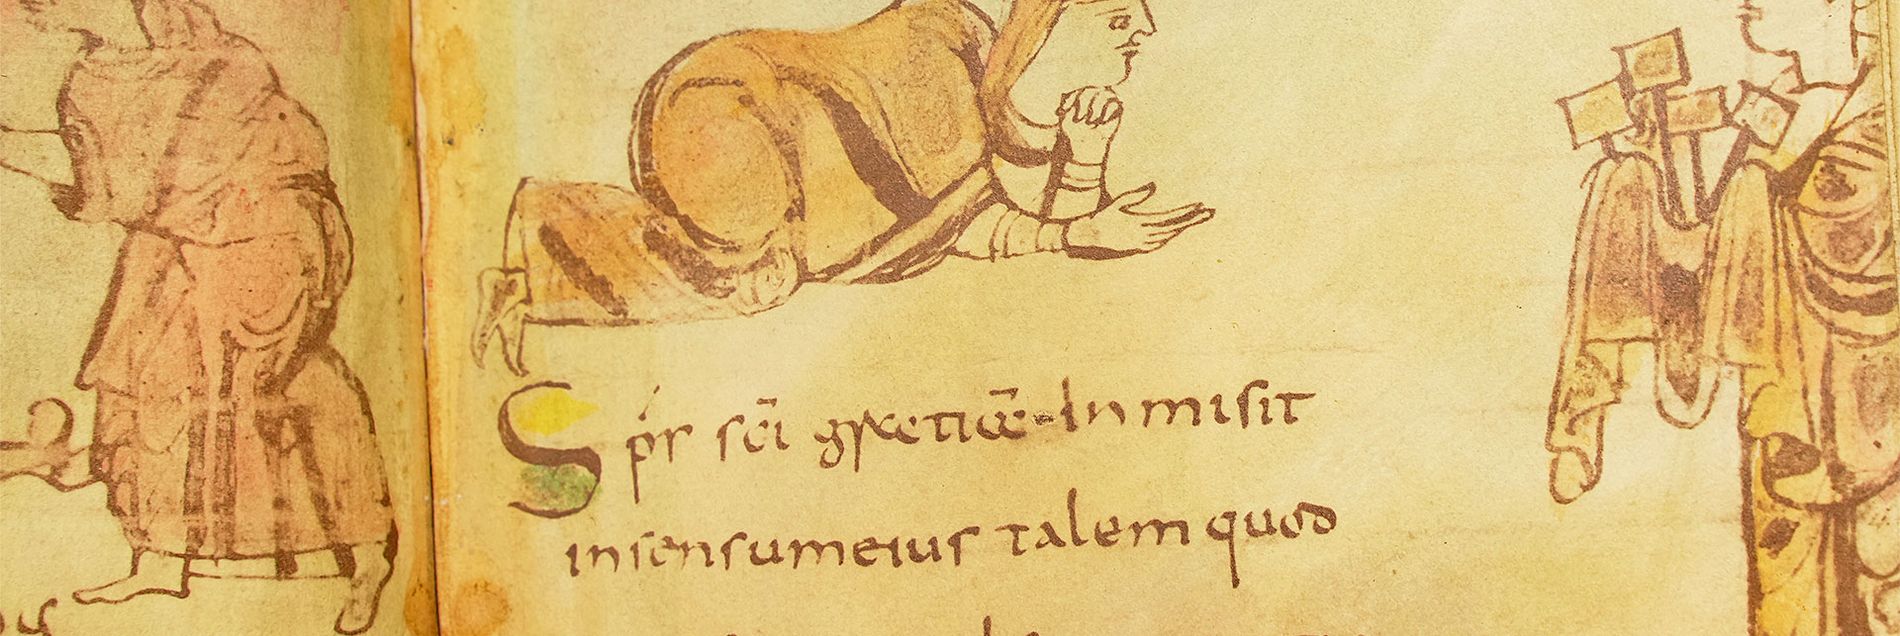 Sp̄s sc̄i gratiæ inmisit
insensumeius talem quod